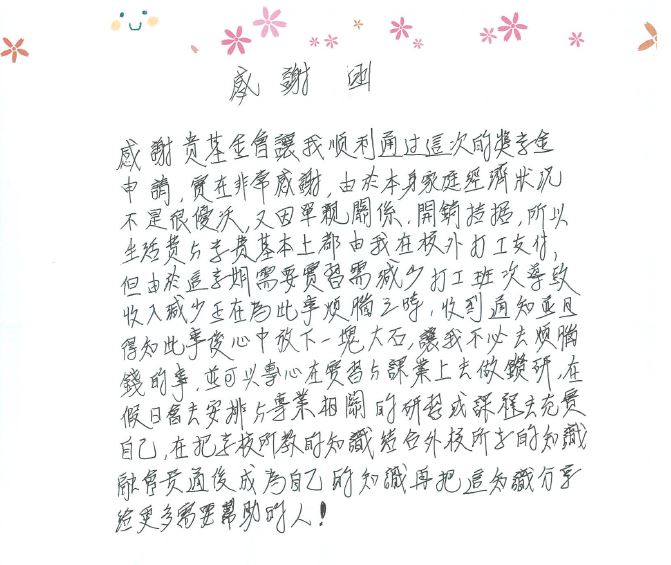 感謝函
感謝貴基金會讓我順利通过這次的獎学金
申請，實在非常感謝，由於本身家庭經濟狀況
不是很優沃，又因單親關係，開銷拮据，所以
生活费与学費基本上都由我在校外打工支付，
但由於這学期需要實習需減少打工班次導致
收入減少正在為此事煩腦之時，收到通知並且
得知此事後心中放下一塊大石，讓我不必去煩腦
錢的事，並可以專心在實習与課業上去做鑽研，在
假日會去安排与專業相關的研習或課程去充實
自己，在把学校所教的知識结合外校所学的知識
融會贯通後成為自己的知識再把這知識分享
给更多需要幫助的人！